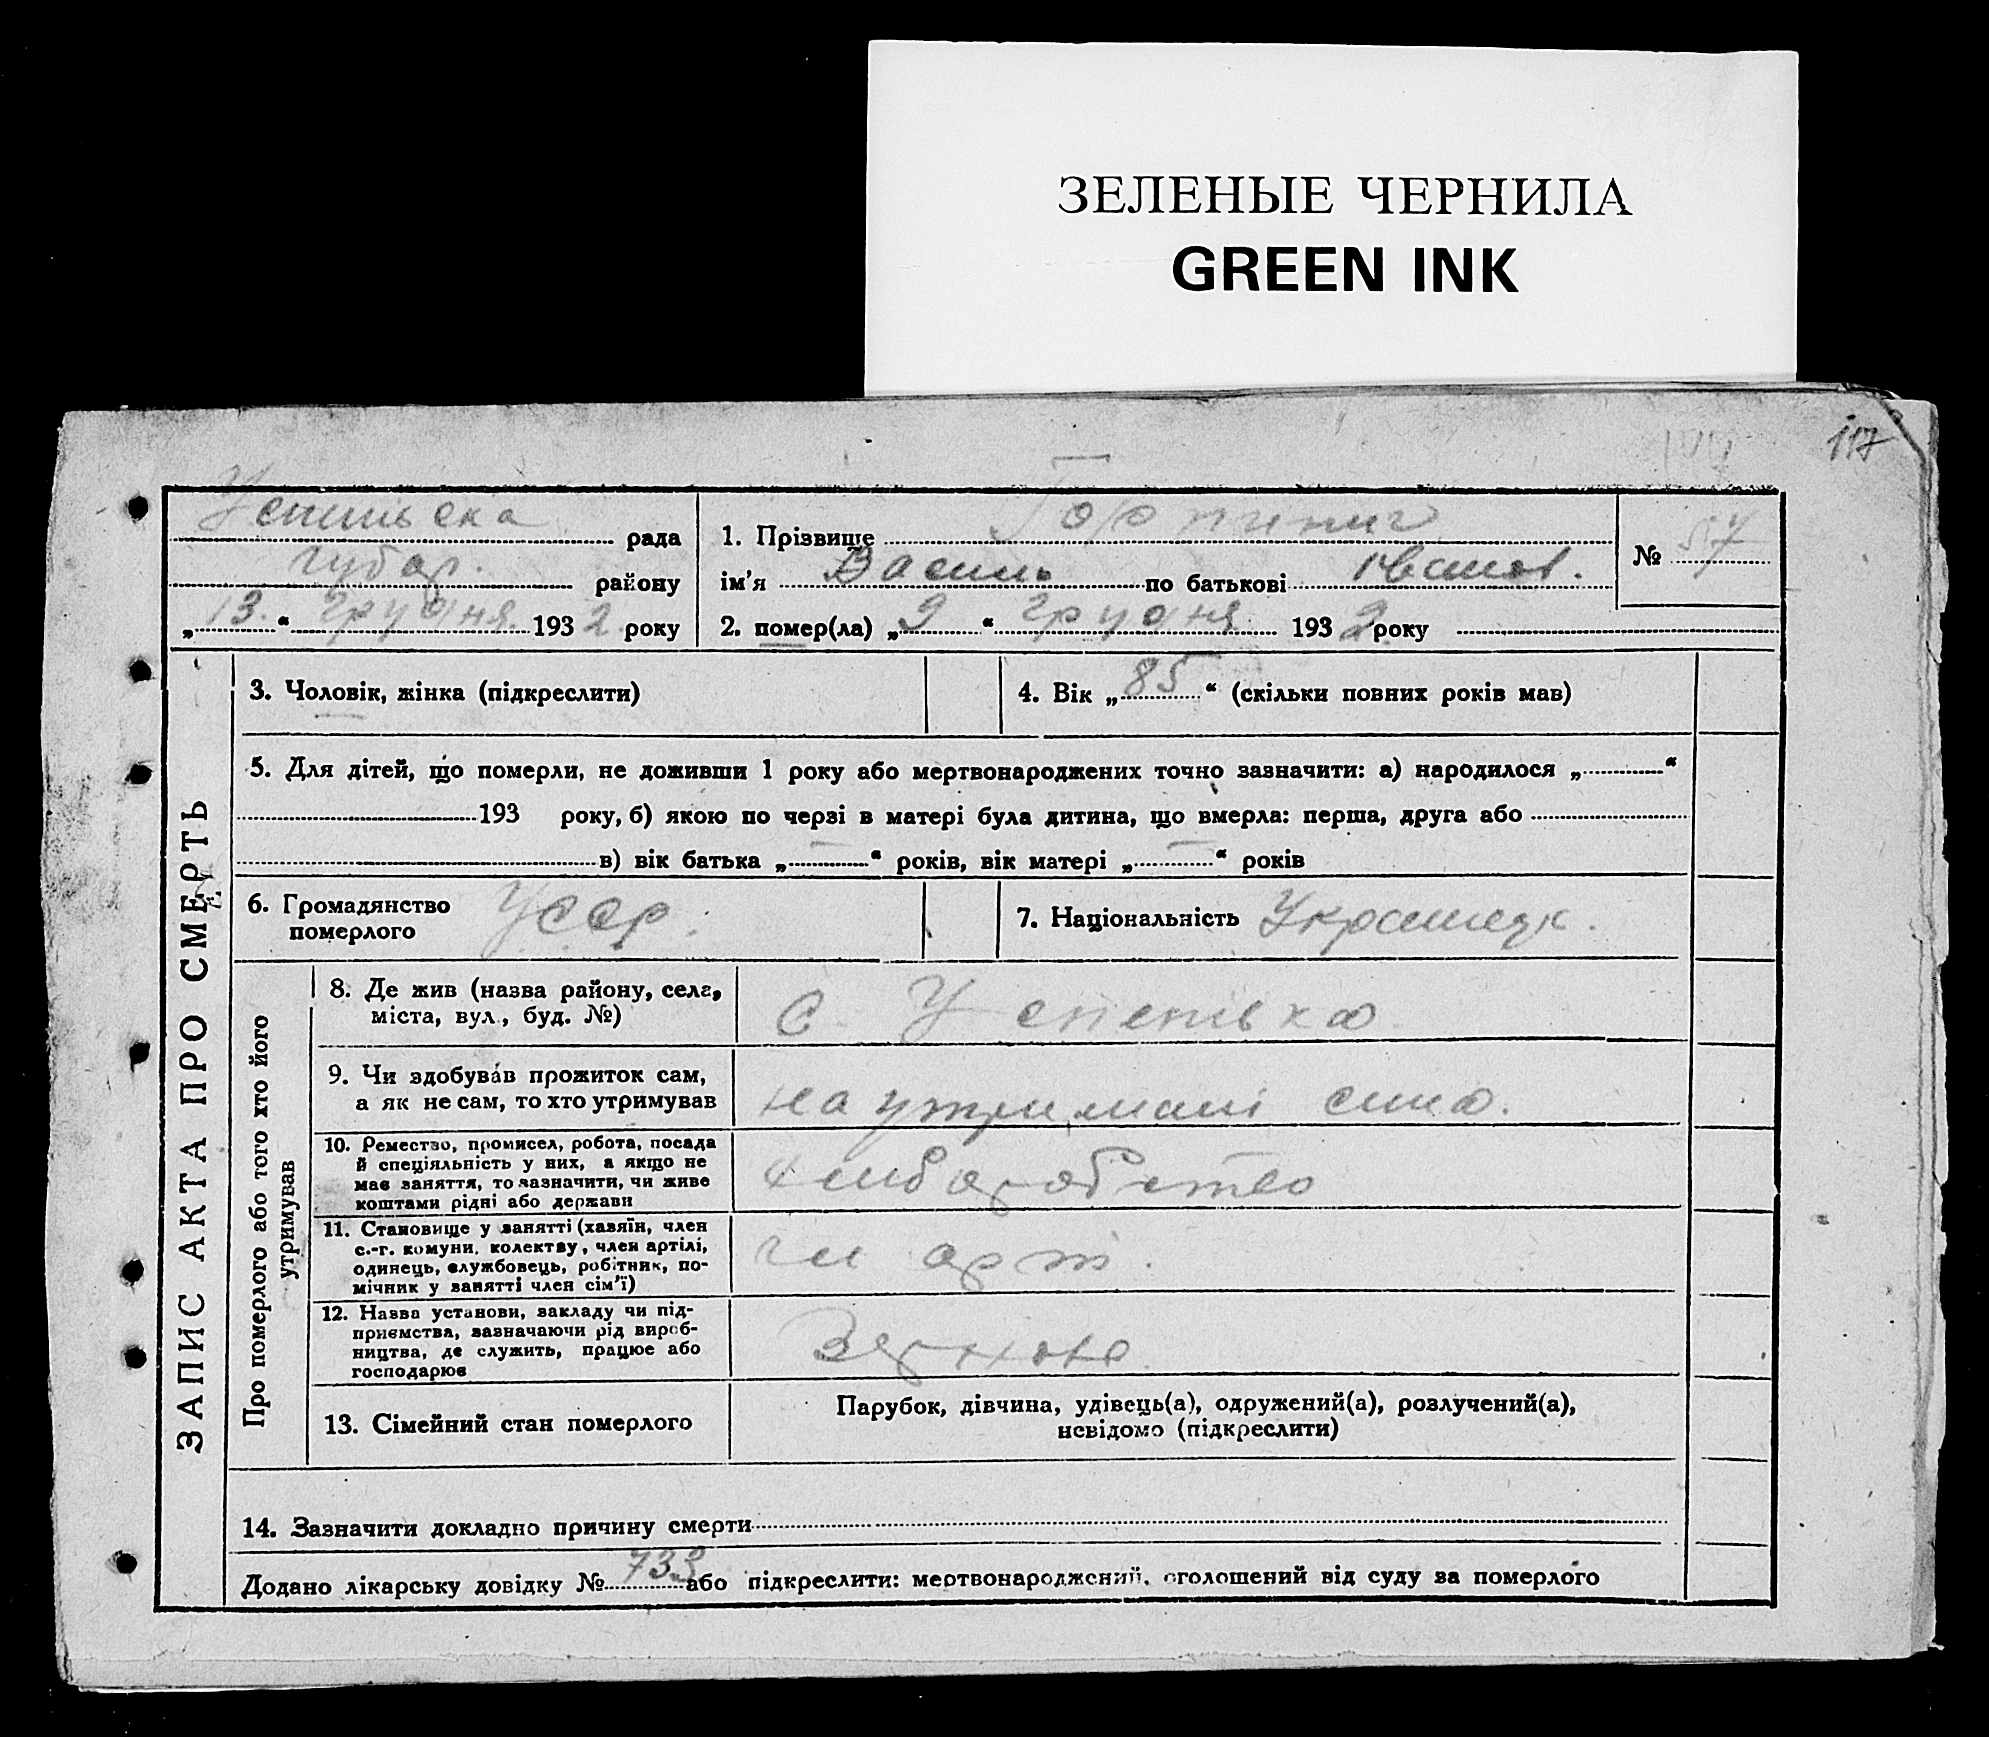 ЗЕЛЕНЫЕ ЧЕРНИЛА
GREEN INK
117
рада
1. Прізвище
№ 57
району
ім'я Василь по батькові Іванов.
„13“ грудня 1932 року
2. помер(ла) „9“ грудня 1932 року
ЗАПИС АКТА ПРО СМЕРТЬ
3. Чоловік, жінка (підкреслити)
4. Вік „85“ (скільки повних років мав)
5. Для дітей, що померли, не доживши 1 року або мертвонароджених точно зазначити: а) народилося „ “
193 року, б) якою по черзі в матері була дитина, що вмерла: перша, друга або
в) вік батька „—“ років, вік матері „—“ років
6. Громадянство
померлого
УССР.
7. Національність Украинец.
Про померлого або того хто його
утримував
8. Де жив (назва району, села,
міста, вул., буд. №)
с.
9. Чи здобував прожиток сам,
а як не сам, то хто утримував
на утримані сина.
10. Ремество, промисел, робота, посада
й спеціяльність у них, а якщо не
має заняття, то зазначити, чи живе
коштами рідні або держави
хліборобство
11. Становище у занятті (хазяїн, член
с.-г. комуни, колектву, член артілі,
одинець, службовець, робітник, по-
мічник у занятті член сім'ї)
чл арт.
12. Назва установи, закладу чи під-
приємства, зазначаючи рід вироб-
ництва, де служить, працює або
господарює
Зернове
13. Сімейний стан померлого
Парубок, дівчина, удівець(а), одружений(а), розлучений(а),
невідомо (підкреслити)
14. Зазначити докладно причину смерти
Додано лікарську довідку № 733 або підкреслити: мертвонароджений, оголошений від суду за померлого